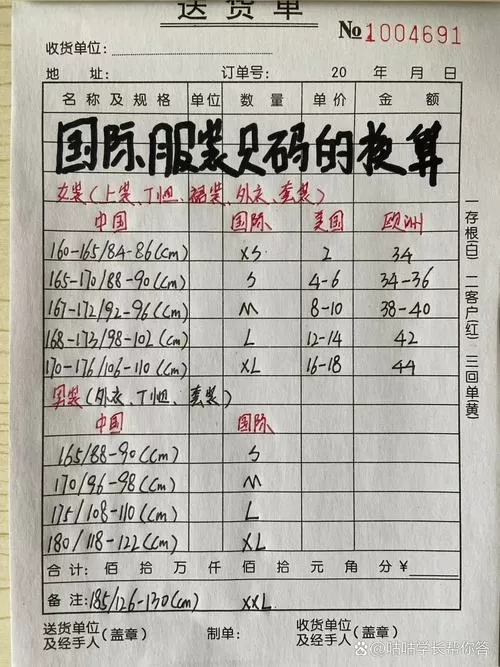 送货单
№1004691
收货单位:
地 址: 订单号: 20 年 月 日
名称及规格 单位 数量 单价 金额
国际服装尺码的换算
女装(上装、T恤、裙装、外衣、套装)
中国 国际 美国 欧洲
160-165/84-86(cm) XS 2 34
165-170/88-90(cm) S 4-6 34-36
167-172/92-96(cm) M 8-10 38-40
168-173/98-102(cm) L 12-14 42
170-176/106-110(cm) XL 16-18 44
男装(外衣、T恤、套装)
中国 国际
165/88-90(cm) S
170/96-98(cm) M
175/108-110(cm) L
180/118-122(cm) XL
合计: 佰 拾 万 仟 佰 拾 元 角 分 ¥
备注:185/126-130(cm) XXL
送货单位及经手人(盖章) 制单: 收货单位及经手人(盖章)
一存根(白) 二客户(红) 三回单(黄)
@咕咕学长帮你答